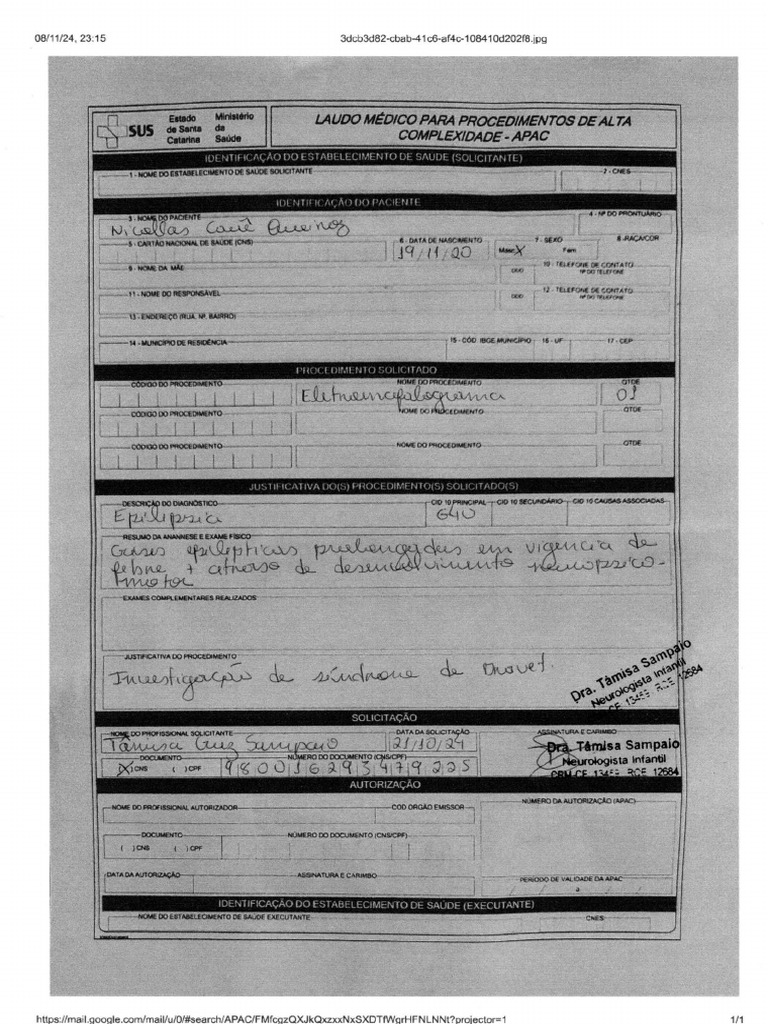 08/11/24, 23:15 3dcb3d82-cbab-41c6-af4c-108410d202f8.jpg
SUS Estado de Santa Catarina Ministério da Saúde
LAUDO MÉDICO PARA PROCEDIMENTOS DE ALTA
COMPLEXIDADE - APAC
IDENTIFICAÇÃO DO ESTABELECIMENTO DE SAÚDE (SOLICITANTE)
1 - NOME DO ESTABELECIMENTO DE SAÚDE SOLICITANTE 2 - CNES
IDENTIFICAÇÃO DO PACIENTE
3 - NOME DO PACIENTE 4 - Nº DO PRONTUÁRIO
Nicollas Cauê Queiroz
5 - CARTÃO NACIONAL DE SAÚDE (CNS) 6 - DATA DE NASCIMENTO 7 - SEXO 8 - RAÇA/COR
19/11/20 Masc X Fem
9 - NOME DA MÃE 10 - TELEFONE DE CONTATO
DDD Nº DO TELEFONE
11 - NOME DO RESPONSÁVEL 12 - TELEFONE DE CONTATO
DDD Nº DO TELEFONE
13 - ENDEREÇO (RUA, Nº, BAIRRO)
14 - MUNICÍPIO DE RESIDÊNCIA 15 - CÓD. IBGE MUNICÍPIO 16 - UF 17 - CEP
PROCEDIMENTO SOLICITADO
CÓDIGO DO PROCEDIMENTO NOME DO PROCEDIMENTO QTDE
Eletroencefalograma 01
CÓDIGO DO PROCEDIMENTO NOME DO PROCEDIMENTO QTDE
CÓDIGO DO PROCEDIMENTO NOME DO PROCEDIMENTO QTDE
JUSTIFICATIVA DO(S) PROCEDIMENTO(S) SOLICITADO(S)
DESCRIÇÃO DO DIAGNÓSTICO CID 10 PRINCIPAL CID 10 SECUNDÁRIO CID 10 CAUSAS ASSOCIADAS
Epilepsia G40
RESUMO DA ANANNESE E EXAME FÍSICO
Crises epilépticas prolongadas em vigência de
febre + atraso de desenvolvimento neuropsico-
motor
EXAMES COMPLEMENTARES REALIZADOS
JUSTIFICATIVA DO PROCEDIMENTO
Investigação de síndrome de Dravet.
Dra. Tâmisa Sampaio
Neurologista Infantil
CE 13459 RQE 12684
SOLICITAÇÃO
NOME DO PROFISSIONAL SOLICITANTE DATA DA SOLICITAÇÃO ASSINATURA E CARIMBO
Tâmisa Cruz Sampaio 21/10/24
Dra. Tâmisa Sampaio
Neurologista Infantil
CRM-CE 13459 RQE 12684
DOCUMENTO NÚMERO DO DOCUMENTO (CNS/CPF)
(X) CNS ( ) CPF 980016293479225
AUTORIZAÇÃO
NOME DO PROFISSIONAL AUTORIZADOR COD ORGÃO EMISSOR NÚMERO DA AUTORIZAÇÃO (APAC)
DOCUMENTO NÚMERO DO DOCUMENTO (CNS/CPF)
( ) CNS ( ) CPF
DATA DA AUTORIZAÇÃO ASSINATURA E CARIMBO PERÍODO DE VALIDADE DA APAC
a
IDENTIFICAÇÃO DO ESTABELECIMENTO DE SAÚDE (EXECUTANTE)
NOME DO ESTABELECIMENTO DE SAÚDE EXECUTANTE CNES
https://mail.google.com/mail/u/0/#search/APAC/FMfcgzQXJkQxzxxNxSXDTfWgrHFNLNNt?projector=1 1/1